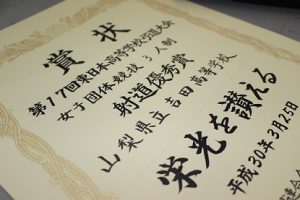 賞状
第17回東日本高等学校弓道大会
女子団体競技 3人制
射道優秀賞
山梨県立吉田高等学校
栄光を讃える
平成30年3月25日